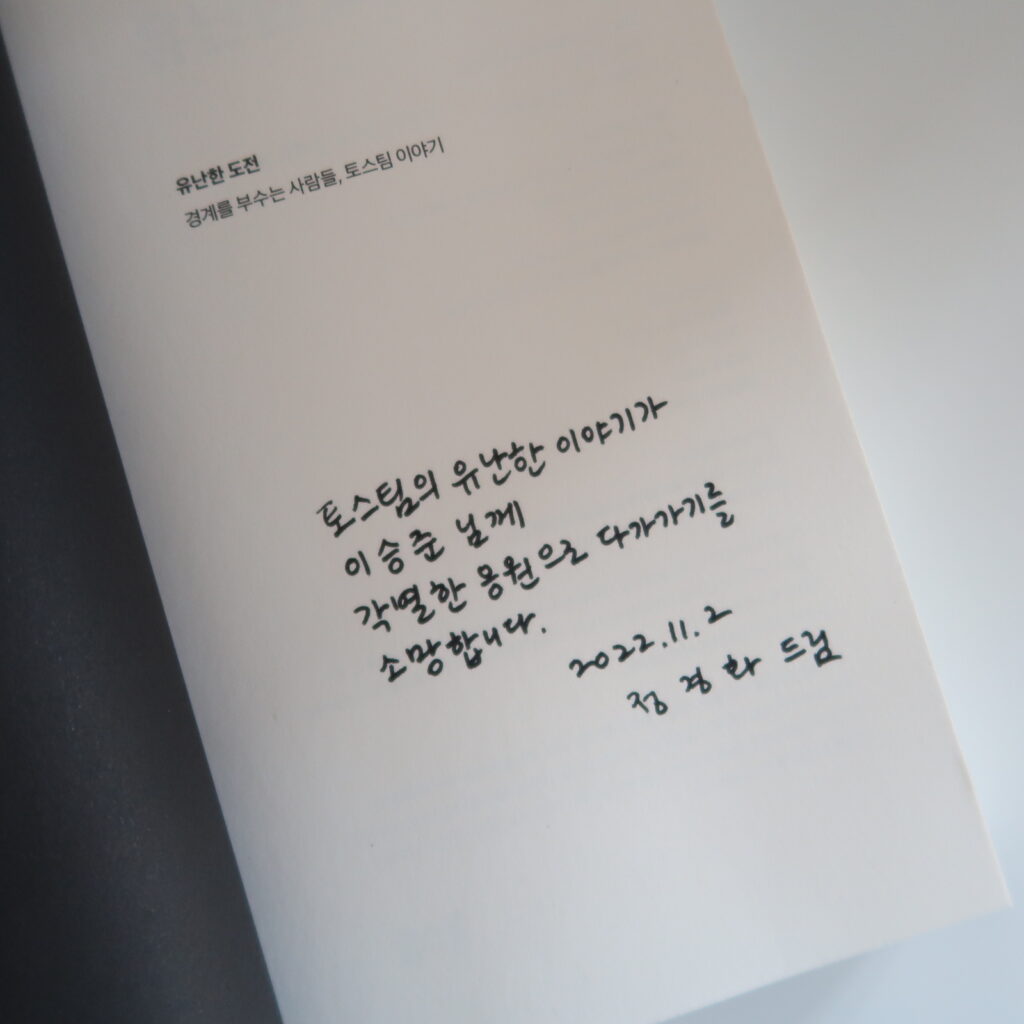 유난한 도전
경계를 부수는 사람들, 토스팀 이야기
토스팀의 유난한 이야기가
이승준 님께
각별한 응원으로 다가가기를
소망합니다.
2022.11.2
정경화 드림